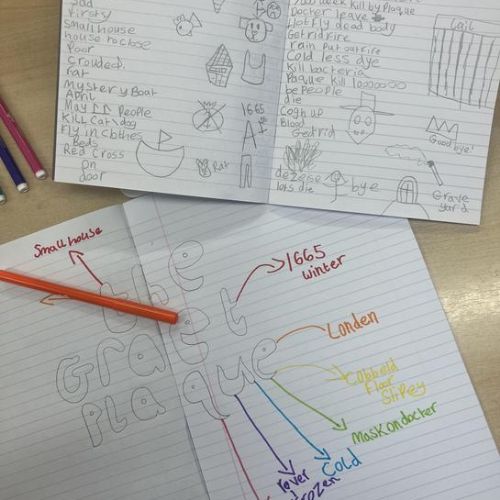 sad
firsty
Small house
house to close
Poor
Crouded
rat
Mystery Boat
April
May People
Kill Cat dog
Fly in clothes
Beds
Red Cross
on
door
1665
A
Rat
week kill by Plaque
Docter leave
Hot fly dead body
Get rid fire
rain put out fire
Cold less dye
Kill bacteria
Paque kill 10000000
be People
die
Cogh up
Blood
Get rid
dezese
lots die
bye
Jail
Good bye!
Grave
yard
the
Graet
Plaque
Small house
1665
winter
Londen
Cobbeld
Floor
Slipey
Mask on docter
Cold
rever
frozen